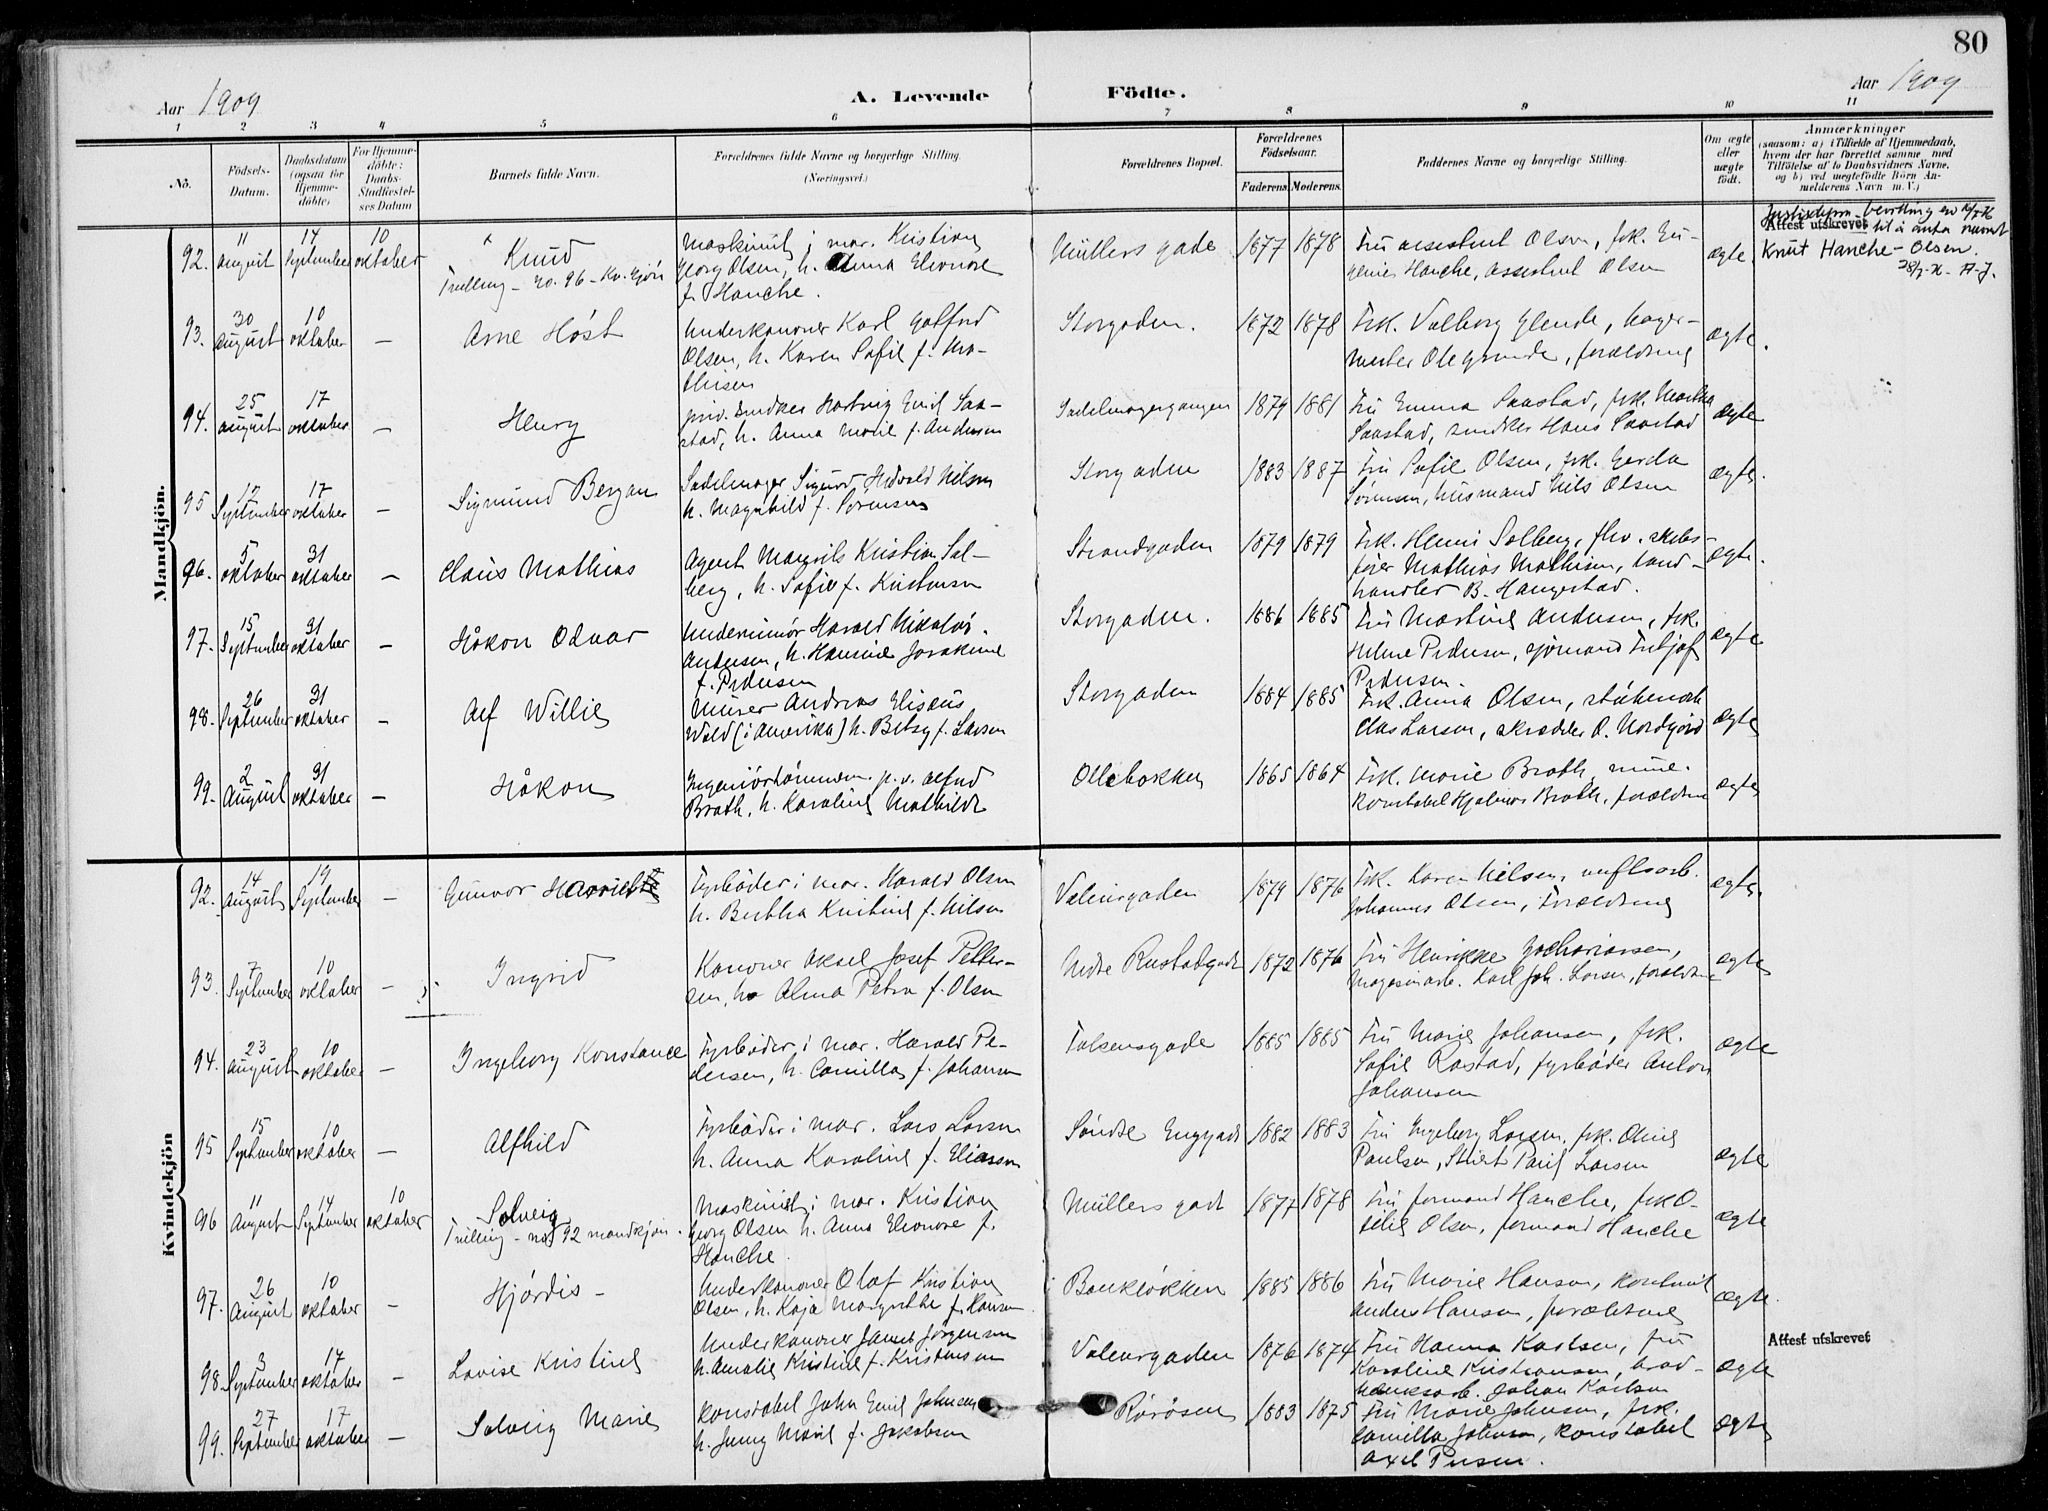 80
Aar 1909 A. Levende Födte. Aar 1909
1 2 3 4 5 6 7 8 9 10 11
No. Födsels-Datum. Daabsdatum (ogsaa for Hjemmedöbte) For Hjemmedöbte: Daabs-Stadfæstelses Datum Barnets fulde Navn. Forældrenes fulde Navne og borgerlige Stilling. (Næringsvei.) Forældrenes Bopæl. Forældrenes Födselsaar. Faderens. Moderens. Faddernes Navne og borgerlige Stilling. Om ægte eller uægte födt. Anmærkninger (saasom: a) i Tilfælde af Hjemmedaab, hvem der har forrettet samme, med Tilföielse af to Daabsvidners Navne, og b) ved uægtefödte Börn Anmelderens Navn m. V.)
Mandkjön.
92. 11 August 14 September 10 oktober Knud
Trilling - no. 96 - Kv. kjön
Maskinist i mar. Kristian
Georg Olsen, h. Anna Eleonore
f. Hanche.
Müllers gade 1877 1878
Fru assistent Olsen, frk. Eu-
genie Hanche, assistent Olsen
ægte.
Attest utskrevet
til å anta navnet
Knut Hanche-Olsen
93. 30 August 10 oktober - Arne Höst
Underkanoner Karl Gotfred
Olsen, h. Karen Sofie f. Ma-
thisen
Storgaden. 1872 1878
Frk. Valborg Glende, bager-
mester Ole Grunde, forældrene
ægte.
94. 25 august 17 oktober - Henry
priv. snedker Hartvig Emil Saa-
stad, h. Anna Marie f. Andersen
Sadelmagergangen 1879 1881
Fru Emma Saastad, frk. Martha
Saastad, snedker Hans Saastad
ægte
95 12 September 17 oktober - Sigmund Bergan
Sadelmager Sigurd Hedvald Nilsen
h. Magnhild f. Sörensen
Storgaden 1883 1887
Fru Sofie Olsen, frk. Gerda
Sörensen, husmand Nils Olsen
ægte.
96. 5 oktober 31 oktober - Claus Mathias
Agent Mauritz Kristian Sol-
berg, h. Sofie f. Kristensen
Strandgaden 1879 1879
Frk. Henni Solberg, fhv. skibs-
förer Mathias Mathisen, land-
handler B. Haugestad.
ægte.
97. 15 September 31 oktober - Håkon Odvar
Underminör Harald Nikolai
Andersen, h. Hansine Jorakine
f. Pedersen
Storgaden. 1886 1885
Fru Martine Andersen, frk.
Helene Pedersen, sjömand Fritjof
Pedersen.
ægte
98. 26 September 31 oktober - Alf Willie
Murer Andreas Eliseus
Wold (i Amerika) h. Betsy f. Larsen
Storgaden 1884 1885
Frk. Anna Olsen,
Claus Larsen, skrædder O. Nordgård
ægte
99. 2 August 31 oktober - Håkon
Ingeniörtömmerm. p. v. Alfred
Brath, h. Karoline Mathilde
Ollebakken 1865 1864
Frk. Marie Brath, mine-
konstabel Hjalmar Brath, forældrene
ægte
Kvindekjön
92. 14 August 19 September - Gunvor Harriet
Fyrböder i mar. Harald Olsen
h. Bertha Kristine f. Nilsen
Valeurgaden 1879 1876
Frk. Karen Nilsen, verftsarb.
Johannes Olsen, Forældrene
ægte.
93. 7 September 10 oktober - Ingrid
Kanoner Aksel Josef Petter-
sen, h. Alma Petra f. Olsen
Nedre Rustadgade 1872 1876
Fru Henrikke Zachariassen,
Magasinarb. Karl Joh. Larsen, forældrene
ægte
94. 23 August 10 oktober - Ingeborg Konstance
Fyrböder i mar. Harald Pe-
dersen, h. Camilla f. Johansen
Falsensgade 1885 1885
Fru Marie Johansen, frk.
Sofie Rastad, fyrböder Anton
Johansen
ægte
95 15 September 10 oktober - Alfhild
Fyrböder i mar. Lars Larsen
h. Anna Karoline f. Eliassen
Söndre Enggade 1882 1883
Fru Ingeborg Larsen, frk. Oline
Paulsen, Paul Larsen
ægte
96 11 August 14 September 10 oktober Solveig
Trilling - no 92 mandkjön.
Maskinist i mar. Kristian
Georg Olsen h. Anna Eleonore f.
Hanche.
Müllers gade 1877 1878
Fru formand Hanche, frk O-
tilie Olsen, formand Hanche
ægte
97. 26 August 10 oktober - Hjördis -
Underkanoner Olaf Kristian
Olsen, h. Kaja Margrethe f. Hansen
Bankløkken 1885 1886
Fru Marie Hansen,
Anders Hansen, forældrene
ægte.
98. 3 September 17 oktober - Lovise Kristine
Underkanoner James Jörgensen
h. Amalie Kristine f. Kristensen
Valeurgaden 1876 1874
Fru Hanna Karlsen, fru
Karoline Kristiansen,
Johan Karlsen
ægte
Attest utskrevet
99. 27 September 17 oktober - Solveig Marie
Konstabel John Emil Johnsen
h. Jenny Marie f. Jakobsen
Röråsen 1883 1875
Fru Marie Johnsen, frk.
Camilla Johnsen, konstabel
Axel
ægte